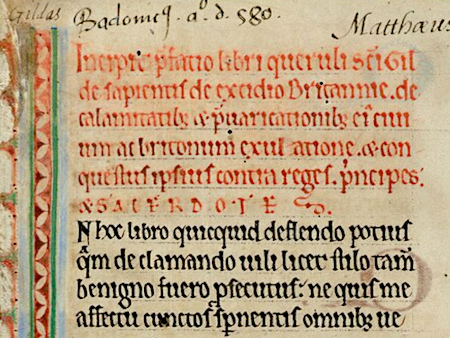 Gildas Badonicꝰ. a.º d. 580. Matthæus
Incipit p̄fatio libri queruli sc̄i Gil
de sapientis de excidio Britannie. de
calamitatibꝫ & p̄uaricationibꝫ ei᷒ ciui
um ac britonum exulatione. & con
questus ipsius contra reges. p̄ncipes.
& SACERDOTES.
IN hoc libro quicquid deflendo potius
qᷓm de clamando uili licet stilo tam̄
benigno fuero p̄secutus. ne quis me
affectu cunctos sp̄nentis omnibꝫ ue